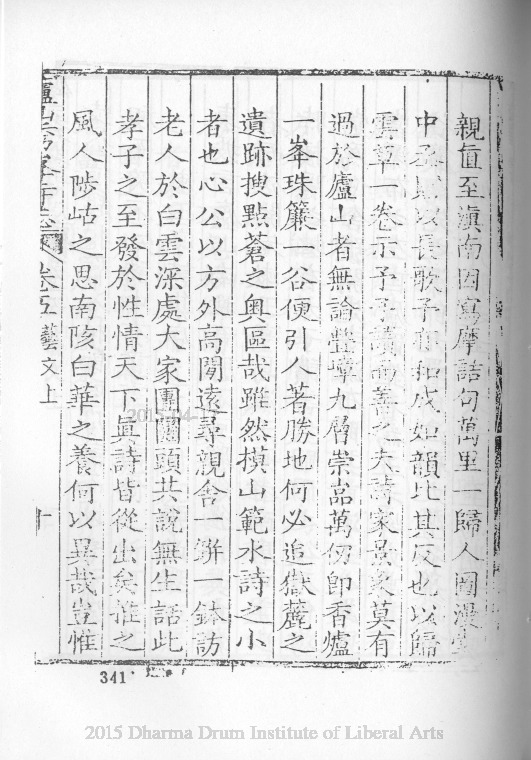 親直至滇南因寫摩詰句萬里一歸人圖漫
中丞以長歌予亦扣成如韻比其反也以歸
雲草一卷示予予讀而善之夫詩家景象莫有
過於廬山者無論疊嶂九層崇嵓萬仞卽香爐
一峯珠簾一谷便引人著勝地何必追嶽麓之
遺跡搜點蒼之奧區哉雖然模山範水詩之小
者也心公以方外高閒遠尋親舍一缾一鉢訪
老人於白雲深處大家團圞頭共說無生話此
孝子之至發於性情天下眞詩皆從出矣推之
風人陟岵之思南陔白華之養何以異哉豈惟
卷五 藝文上
十
341
2015 Dharma Drum Institute of Liberal Arts